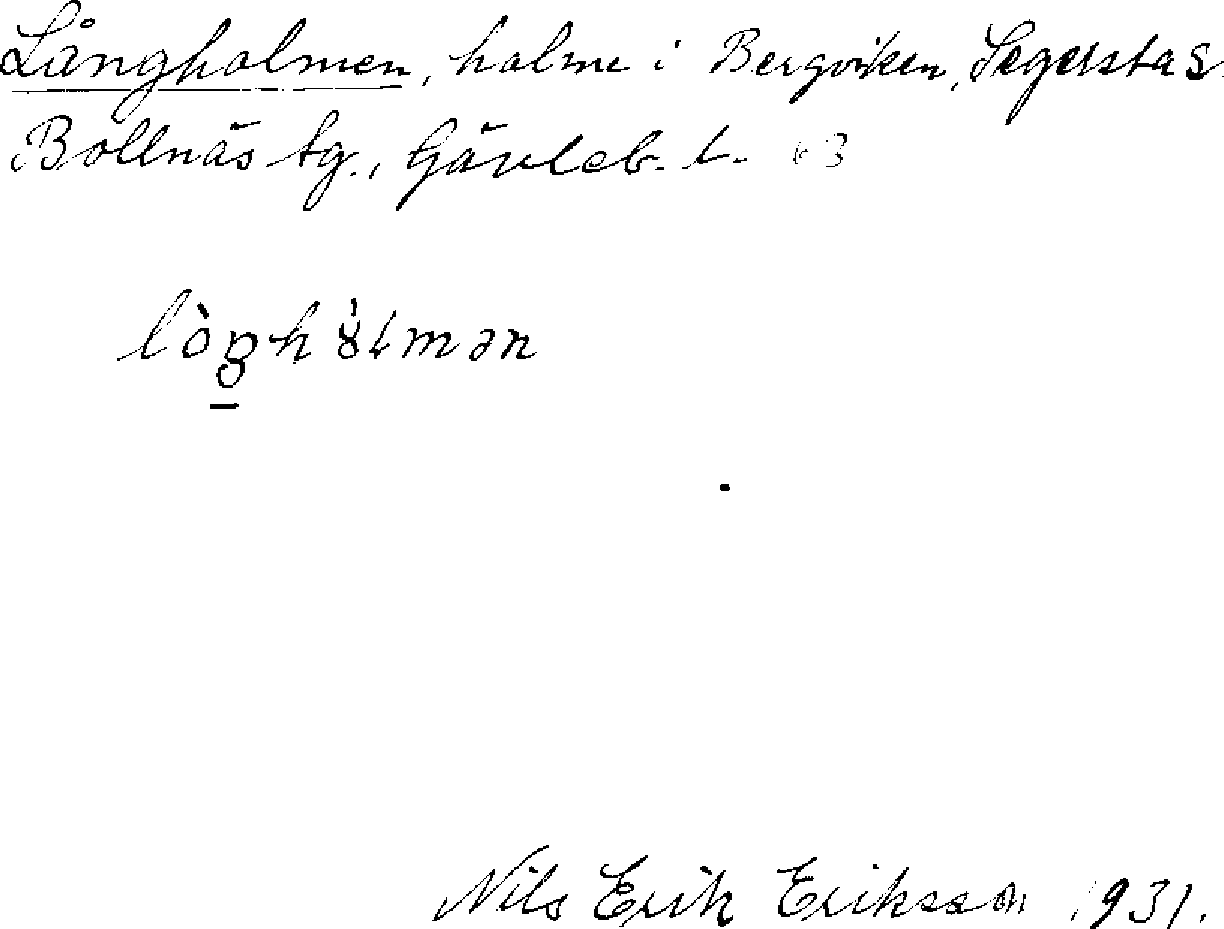 Långholmen, holme i Bergviken, Segersta s.
Bollnäs tg., Gävleb. l. 63
Nils Erik Eriksson 1931.